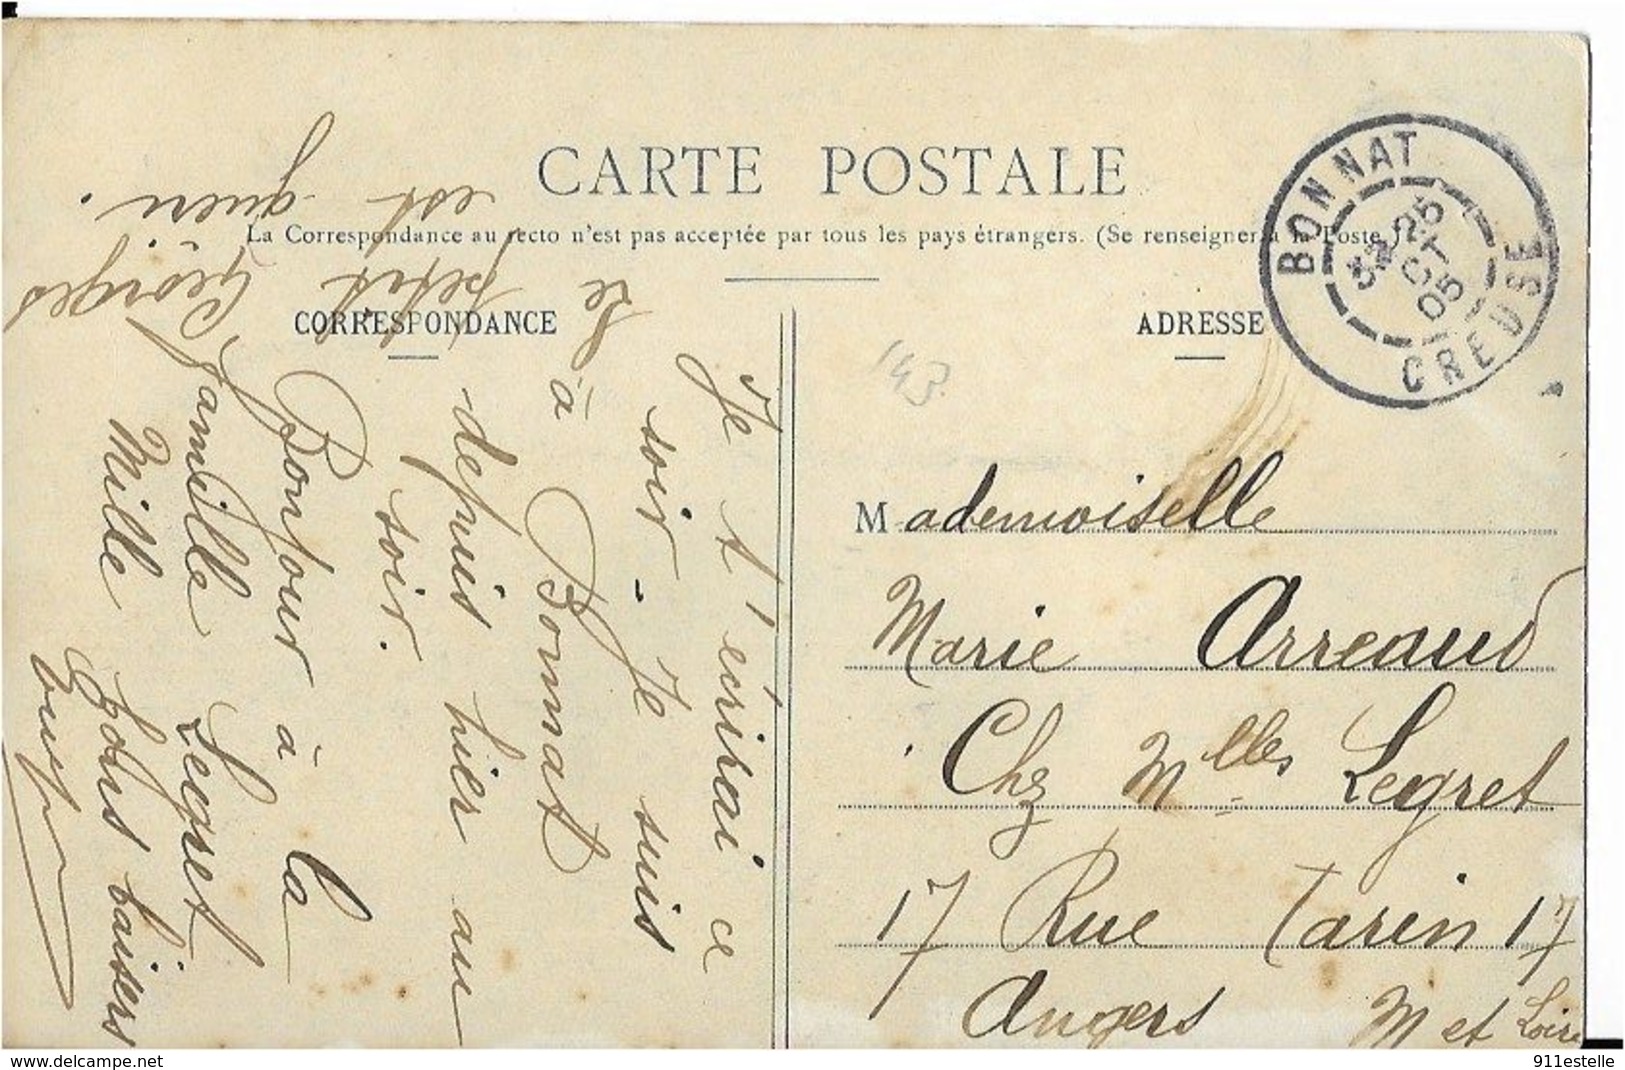 CARTE POSTALE
La Correspondance au recto n'est pas acceptée par tous les pays étrangers. (Se renseigner à la Poste.)
CORRESPONDANCE
Je t'écrirai ce
soir - Je suis
à Bonnat
depuis hier au
soir.
Bonjour à la
famille Legret
Mille bons baisers
le petit
Georges
est guéri.
ADRESSE
143
BONNAT
25
OCT
05
CREUSE
Mademoiselle
Marie Arreaud
Chz Mlles Legret
17 Rue Tarin 17
Angers M et Loire
www.delcampe.net
911estelle